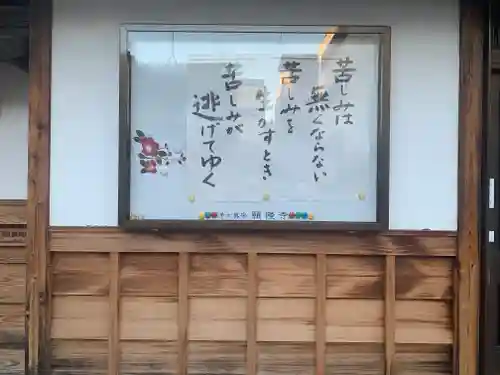 苦しみは
無くならない
苦しみを
生かすとき
苦しみが
逃げてゆく
願隆寺